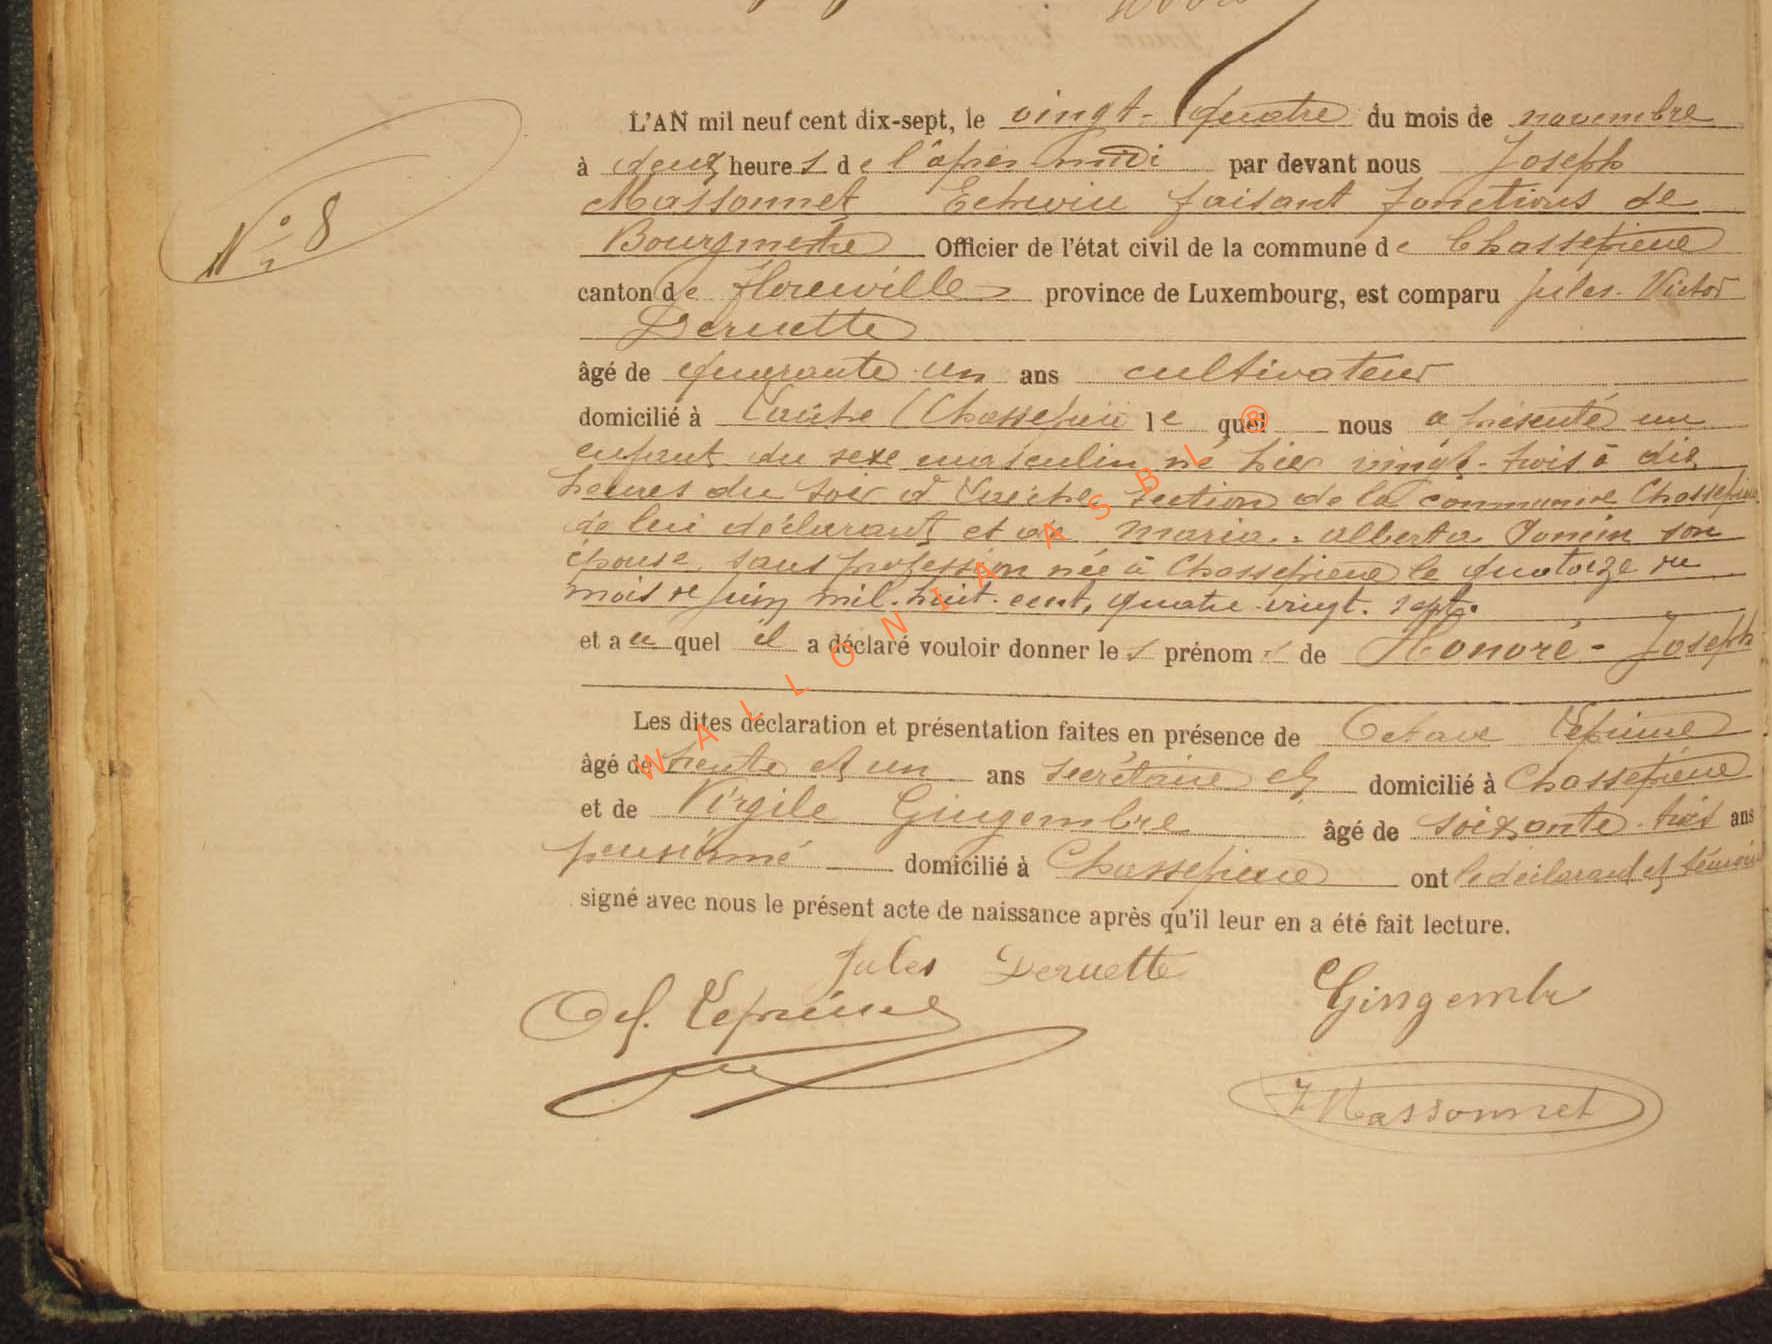 N° 8
L'AN mil neuf cent dix-sept, le vingt-quatre du mois de novembre
à deux heures de l'après-midi par devant nous Joseph
Massonnet Echevin faisant fonctions de
Bourgmestre Officier de l'état civil de la commune de Chassepierre
canton de Florenville province de Luxembourg, est comparu Jules-Victor
Deruette
âgé de quarante un ans cultivateur
domicilié à Laiche (Chassepierre le quel nous a présenté un
enfant du sexe masculin né hier vingt-trois à dix
heures du soir à Laiche section de la commune Chassepierre
de lui déclarant et de Maria-Alberta son
épouse, sans profession née à Chassepierre le quatorze du
mois de juin mil-huit-cent, quatre-vingt-sept.
et au quel il a déclaré vouloir donner les prénoms de Honoré-Joseph
Les dites déclaration et présentation faites en présence de Octave Lepinne
âgé de trente et un ans secrétaire et domicilié à Chassepierre
et de Virgile Gingembre âgé de soixante-trois ans
pensionné domicilié à Chassepierre ont le déclarant et témoins
signé avec nous le présent acte de naissance après qu'il leur en a été fait lecture.
Jules Deruette
Oct. Lepinne
Gingembre
J Massonnet
WALLONIA ASBL ®